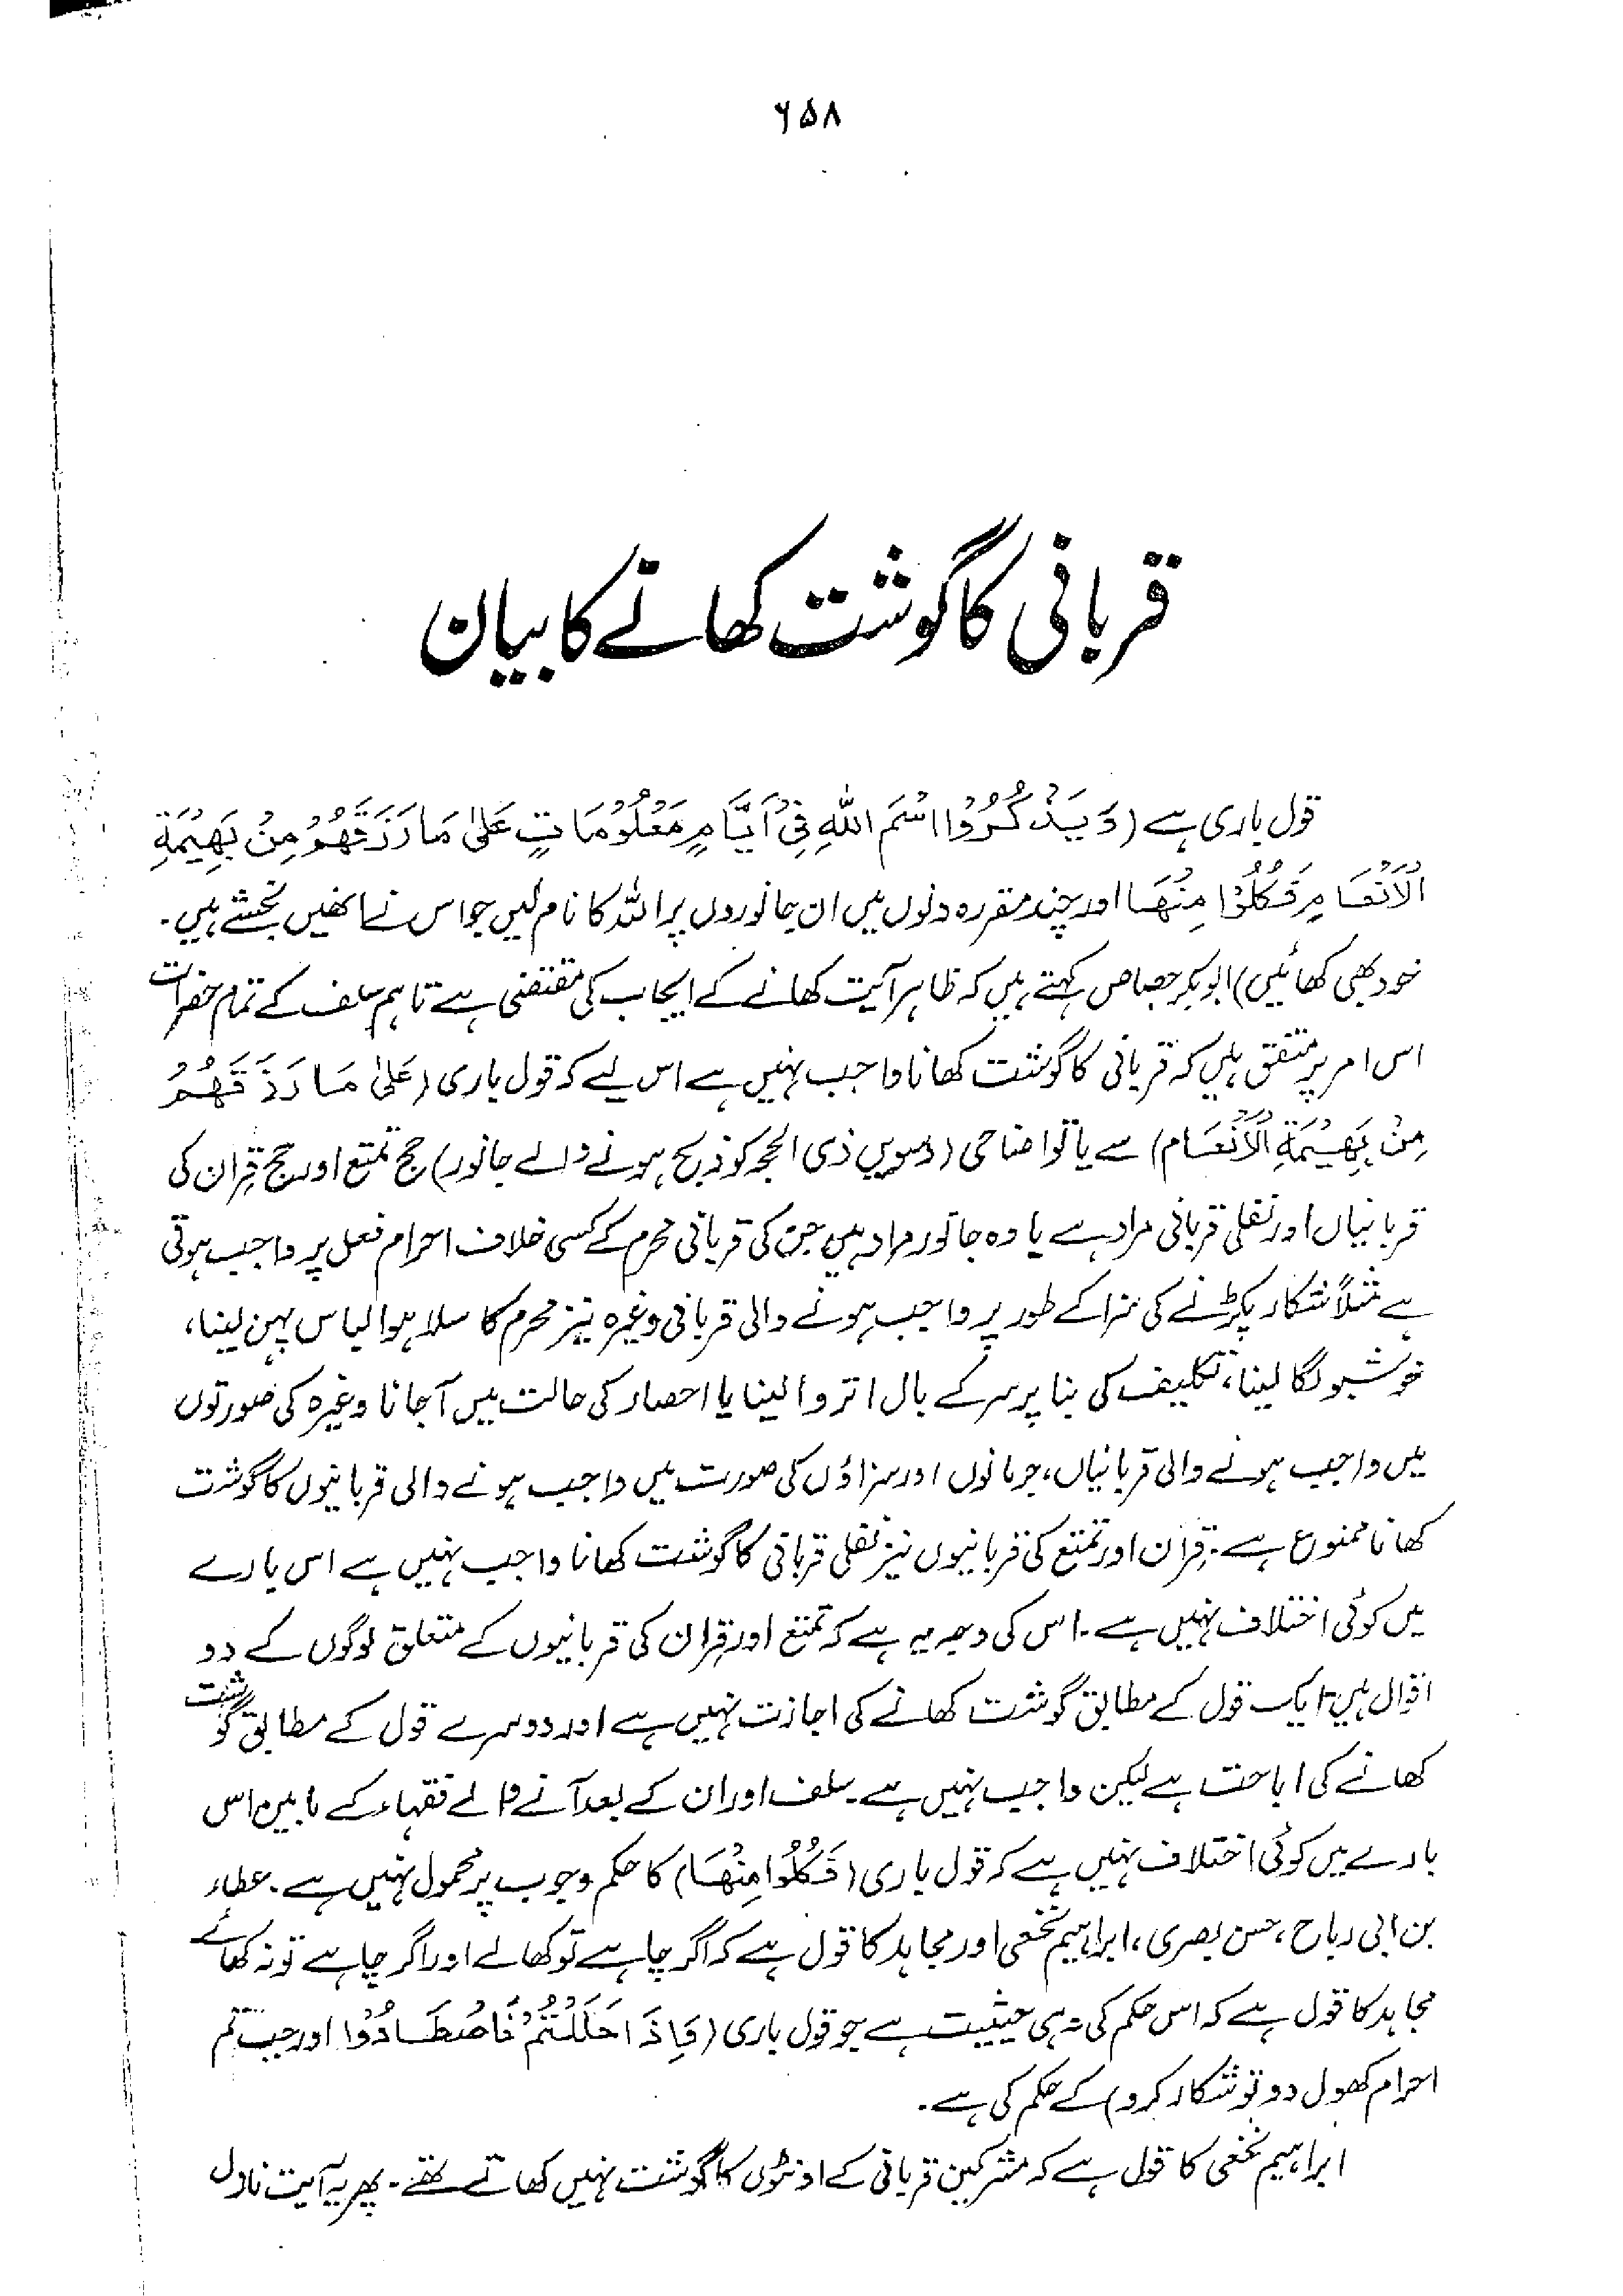 ۶۵۸
قربانی کا گوشت کھانے کا بیان
قول باری ہے (وَیَذْکُرُوا اسْمَ اللّٰهِ فِیْ اَیَّامٍ مَعْلُوْمَاتٍ عَلٰی مَا رَزَقَهُمْ مِنْ بَهِیْمَةِ
الْاَنْعَامِ فَکُلُوْا مِنْهَا اور چند مقررہ دنوں میں ان جانوروں پر اللہ کا نام لیں جو اس نے انھیں بخشے ہیں۔
خود بھی کھائیں) ابوبکر جصاص کہتے ہیں کہ ظاہر آیت کھانے کے ایجاب کی مقتضی ہے تاہم سلف کے تمام حضرات
اس امر پر متفق ہیں کہ قربانی کا گوشت کھانا واجب نہیں ہے اس لیے کہ قول باری (عَلٰی مَا رَزَقَهُمْ
مِنْ بَهِیْمَةِ الْاَنْعَام) سے یا تو اضاحی (دسویں ذی الحجہ کو ذبح ہونے والے جانور) حج تمتع اور حج قِران کی
قربانیاں اور نفلی قربانی مراد ہے یا وہ جانور مراد ہیں جن کی قربانی محرم کے کسی خلاف احرام فعل پر واجب ہوتی
ہے مثلاً شکار پکڑنے کی سزا کے طور پر واجب ہونے والی قربانی وغیرہ نیز محرم کا سلا ہوا لباس پہن لینا،
خوشبو لگا لینا، تکلیف کی بنا پر سر کے بال اتروا لینا یا احصار کی حالت میں آجانا وغیرہ کی صورتوں
میں واجب ہونے والی قربانیاں، جرمانوں اور سزاؤں کی صورت میں واجب ہونے والی قربانیوں کا گوشت
کھانا ممنوع ہے۔ قِران اور تمتع کی قربانیوں نیز نفلی قربانی کا گوشت کھانا واجب نہیں ہے اس بارے
میں کوئی اختلاف نہیں ہے۔ اس کی وجہ یہ ہے کہ تمتع اور قِران کی قربانیوں کے متعلق لوگوں کے دو
اقوال ہیں۔ ایک قول کے مطابق گوشت کھانے کی اجازت نہیں ہے اور دوسرے قول کے مطابق گوشت
کھانے کی اباحت ہے لیکن واجب نہیں ہے۔ سلف اور ان کے بعد آنے والے فقہاء کے مابین اس
بارے میں کوئی اختلاف نہیں ہے کہ قول باری (فَکُلُوْا مِنْهَا) کا حکم وجوب پر محمول نہیں ہے۔ عطاء
بن ابی رباح، حسن بصری، ابراہیم نخعی اور مجاہد کا قول ہے کہ اگر چاہے تو کھالے اور اگر چاہے تو نہ کھائے
مجاہد کا قول ہے کہ اس حکم کی وہی حیثیت ہے جو قول باری (فَاِذَا حَلَلْتُمْ فَاصْطَادُوْا اور جب تم
احرام کھول دو تو شکار کرو) کے حکم کی ہے۔
ابراہیم نخعی کا قول ہے کہ مشرکین قربانی کے اونٹوں کا گوشت نہیں کھاتے تھے۔ پھر یہ آیت نازل